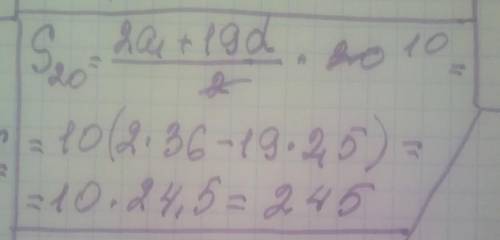 S₂₀ = (2a₁ + 19d)/2 · 20 10 =
= 10(2·36 − 19·2,5) =
= 10·24,5 = 245